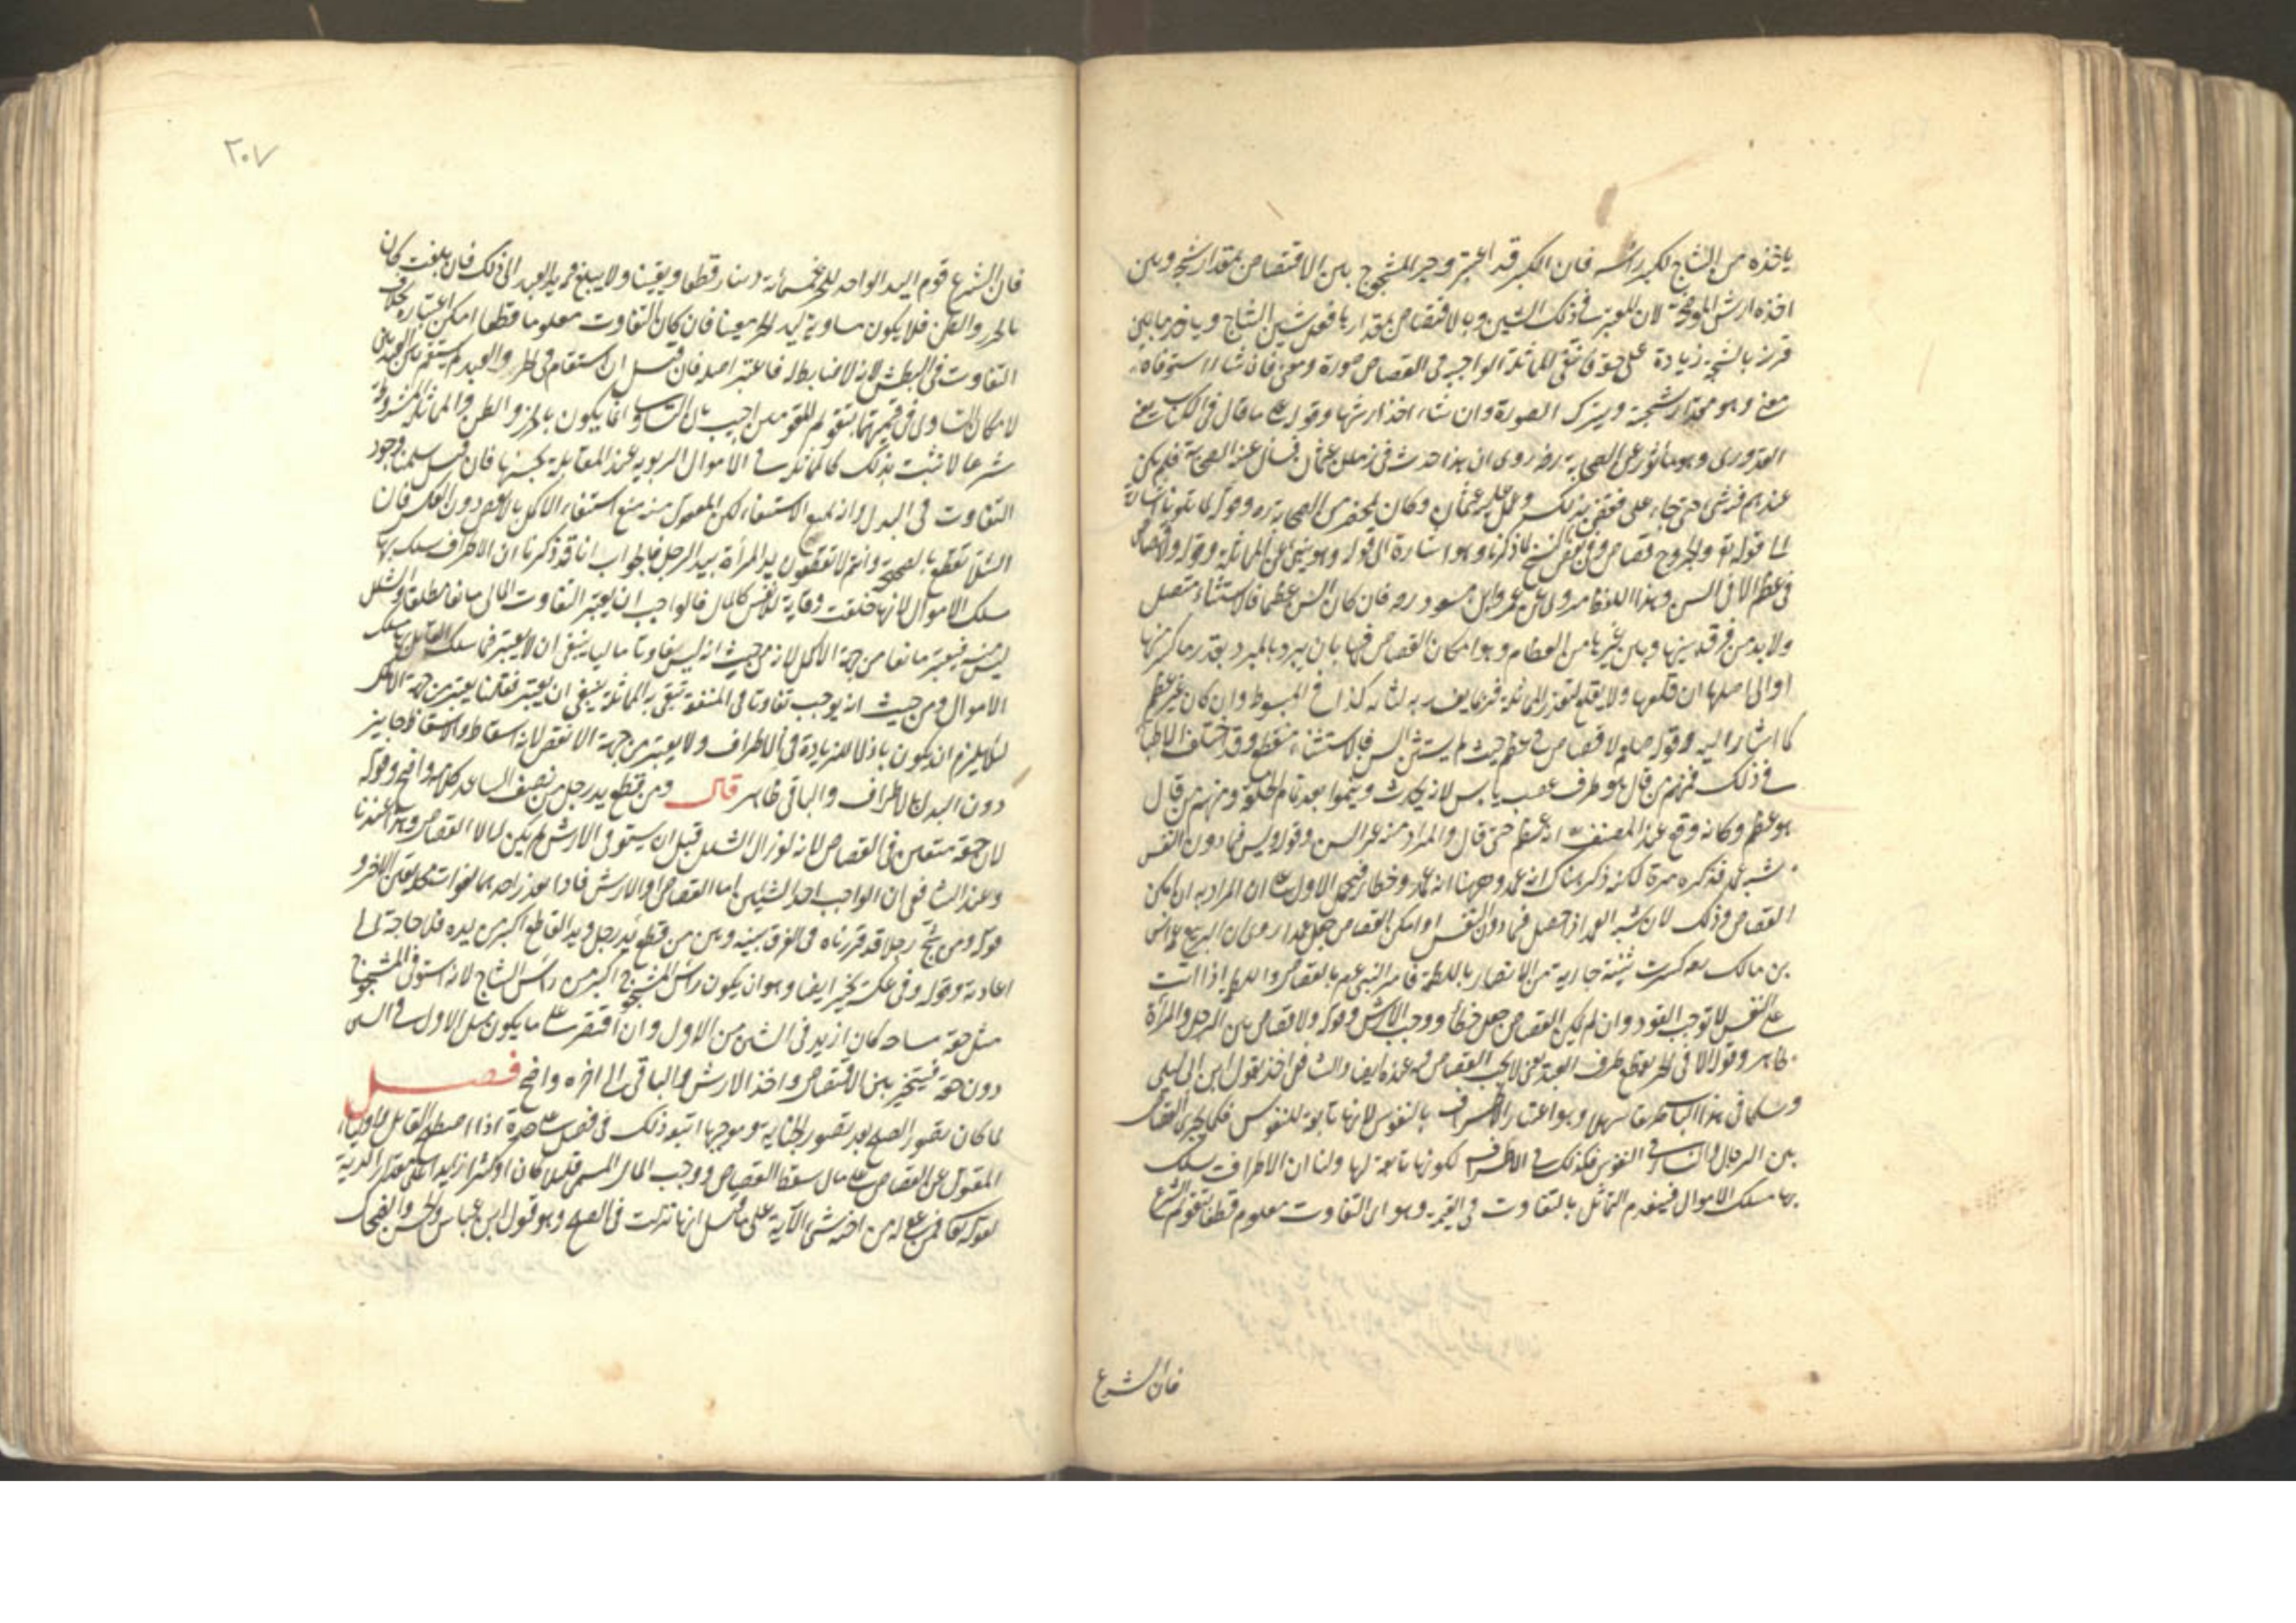 ياخذه من الشاج لكبر راسه فان الكبر قد اعتبر وخير المشجوج بين الاقتصاص بمقدار شجه وبين
اخذه ارش الموضحة لان المعتبر في ذلك الشين وبالاقتصاص بمقدار يافعل شين الشاج وياخر مابين
قرنيه بالشجة زيادة على حقه فانتفى المماثلة الواجب في القصاص صورة ومعنى فان شاء استوفاه
معنى وهو مقدار شجته ويترك الصورة وان شاء اخذ ارشها وقوله على ما قال في الكتاب يعنى
القدوري وهو ماثور عن الصحابة رضه روى ان هذا حدث في زمن عثمان فسال عنه الصحابة فلم يكن
عندهم فيه شى حتى جاء على فقضى بذلك وعمل عليه عثمان وكان بمحضر من الصحابة وقوله لما تلونا اشارة
الى قوله تع والجروح قصاص وفى بعض النسخ لما ذكرنا وهو اشارة الى قوله وهو ينبئ عن المماثلة وقوله ولا قصاص
في عظم الا في السن وهذا اللفظ مروى عن عمر وابن مسعود رضه فان كان السن عظما فالاستثناء متصل
ولابد من فرق بينها وبين غيرها من العظام وهو امكان القصاص فيها بان يبرد بالمبرد بقدر ما كسر منها
او الى اصلها ان قلعها ولا يقلع لتعذر المماثلة فربما يفسد به لثاته كذا في المبسوط وان كان غير عظم
كما اشار اليه وقوله صلعم لا قصاص في عظم حيث لم يستثن السن فالاستثناء منقطع وقد اختلف الاطباء
في ذلك فمنهم من قال هو طرف عصب يابس لانه يحدث وينموا بعد تمام الخلقة ومنهم من قال
هو عظم وكانه وقع عند المصنف انه عظم حتى قال والمراد منه غير السن وقوله وليس فيما دون النفس
شبه عمد قد ذكره مرة لكنه ذكر هناك انه عمد وههنا انه عمد وخطا فيحمل الاول على ان المراد به ان امكن
القصاص وذلك لان شبه العمد اذا حصل فيما دون النفس وامكن القصاص جعل عمدا روى ان الربيع عمة انس
بن مالك رضه كسرت ثنية جارية من الانصار باللطمة فامر النبى عم بالقصاص واللطمة اذا اتت
على النفس لا توجب القود وان لم يكن القصاص جعل خطأ ووجب الارش وقوله ولا قصاص بين الرجل والمرأة
ظاهر وقوله الا في الحر يقطع طرف العبد يعنى لا يجب القصاص فيه عنده ايضا والشافعى اخذ بقول ابن ابى ليلى
وسلكا في هذا الباب طريقا سهلا وهو اعتبار الاطراف بالنفوس لانها تابعة للنفوس فكما يجرى القصاص
بين الرجال والنساء في النفوس فكذلك في الاطراف لكونها تابعة لها ولنا ان الاطراف يسلك
بها مسلك الاموال فينعدم التماثل بالتفاوت في القيمة وهو اى التفاوت معلوم قطعا بتقويم الشرع
فان الشرع
٢٠٧
فان الشرع قوم اليد الواحد للحر بخمسمائة دينار قطعا ويقينا ولا يبلغ قيمة يد العبد الى ذلك فان بلغت كان
بالحزر والظن فلا يكون مساوية ليد الحر يقينا فان كان التفاوت معلوما قطعا امكن اعتباره بخلاف
التفاوت في البطش لانه لا ضابط له فاعتبر اصله فان قيل ان استقام في الحر والعبد لم يستقم بين العبدين
لامكان التساوى في قيمتهما بتقويم المقومين اجيب بان التساوى انما يكون بالحزر والظن والمماثلة المشروطة
شرعا لا تثبت بذلك كالمماثلة في الاموال الربوية عند المقابلة بجنسها فان قيل سلمنا وجود
التفاوت في البدل وانه يمنع الاستيفاء لكن المعقول منه منع استيفاء الاكمل بالانقص دون العكس فان
الشلا تقطع بالصحيحة وانتم لا تقطعون يد المرأة بيد الرجل فالجواب انا قد ذكرنا ان الاطراف يسلك بها
مسلك الاموال لانها خلقت وقاية للانفس كالمال فالواجب ان يعتبر التفاوت المالى مانعا مطلقا والشلل
ليس منه فيعتبر مانعا من جهة الاكمل لانه من حيث انه ليس تفاوتا ماليا ينبغى ان لا يعتبر فيما سلك به مسلك
الاموال ومن حيث انه يوجب تفاوتا في المنفعة تنتفى به المماثلة ينبغى ان يعتبر فقلنا يعتبر من جهة الاكمل
لئلا يلزم ان يكون باذلا للزيادة في الاطراف ولا يعتبر من جهة الانقص لانه اسقاط والاسقاط جايز
دون البدل بالاطراف والباقى ظاهر قال ومن قطع يد رجل من نصف الساعد كلامه واضح وقوله
لان حقه متعين في القصاص لانه لو زال الشلل قبل ان يستوفى الارش لم يكن له الا القصاص وهذا عندنا
وعند الشافعى ان الواجب احد الشيئين اما القصاص او الارش فاذا تعذر احدهما لفوات محله تعين الاخر و
قوله ومن شج رجلا قد قررناه في الفرق بينه وبين من قطع يد رجل ويد القاطع اكبر من يده فلا حاجة الى
اعادته وقوله وفى عكسه يخير ايضا وهو ان يكون راس المشجوج اكبر من راس الشاج لانه استوفى المشجوج
مثل حقه مساحة كان ازيد في الشين من الاول وان اقتصر على ما يكون مثل الاول في الشين
دون حقه فيتخير بين الاقتصاص واخذ الارش والباقى الى اخره واضح فصل
لما كان تصور الصلح بعد تصور الجناية وموجبها اتبعه ذلك في فصل على حدة اذا اصطلح القاتل واولياء
المقتول عن القصاص على مال سقط القصاص ووجب المال المسمى قليلا كان او كثيرا زايدا على مقدار الدية
لقوله تعا فمن عفى له من اخيه شى الآية على ما قيل انها نزلت في الصلح وهو قول ابن عباس والحسن والضحاك